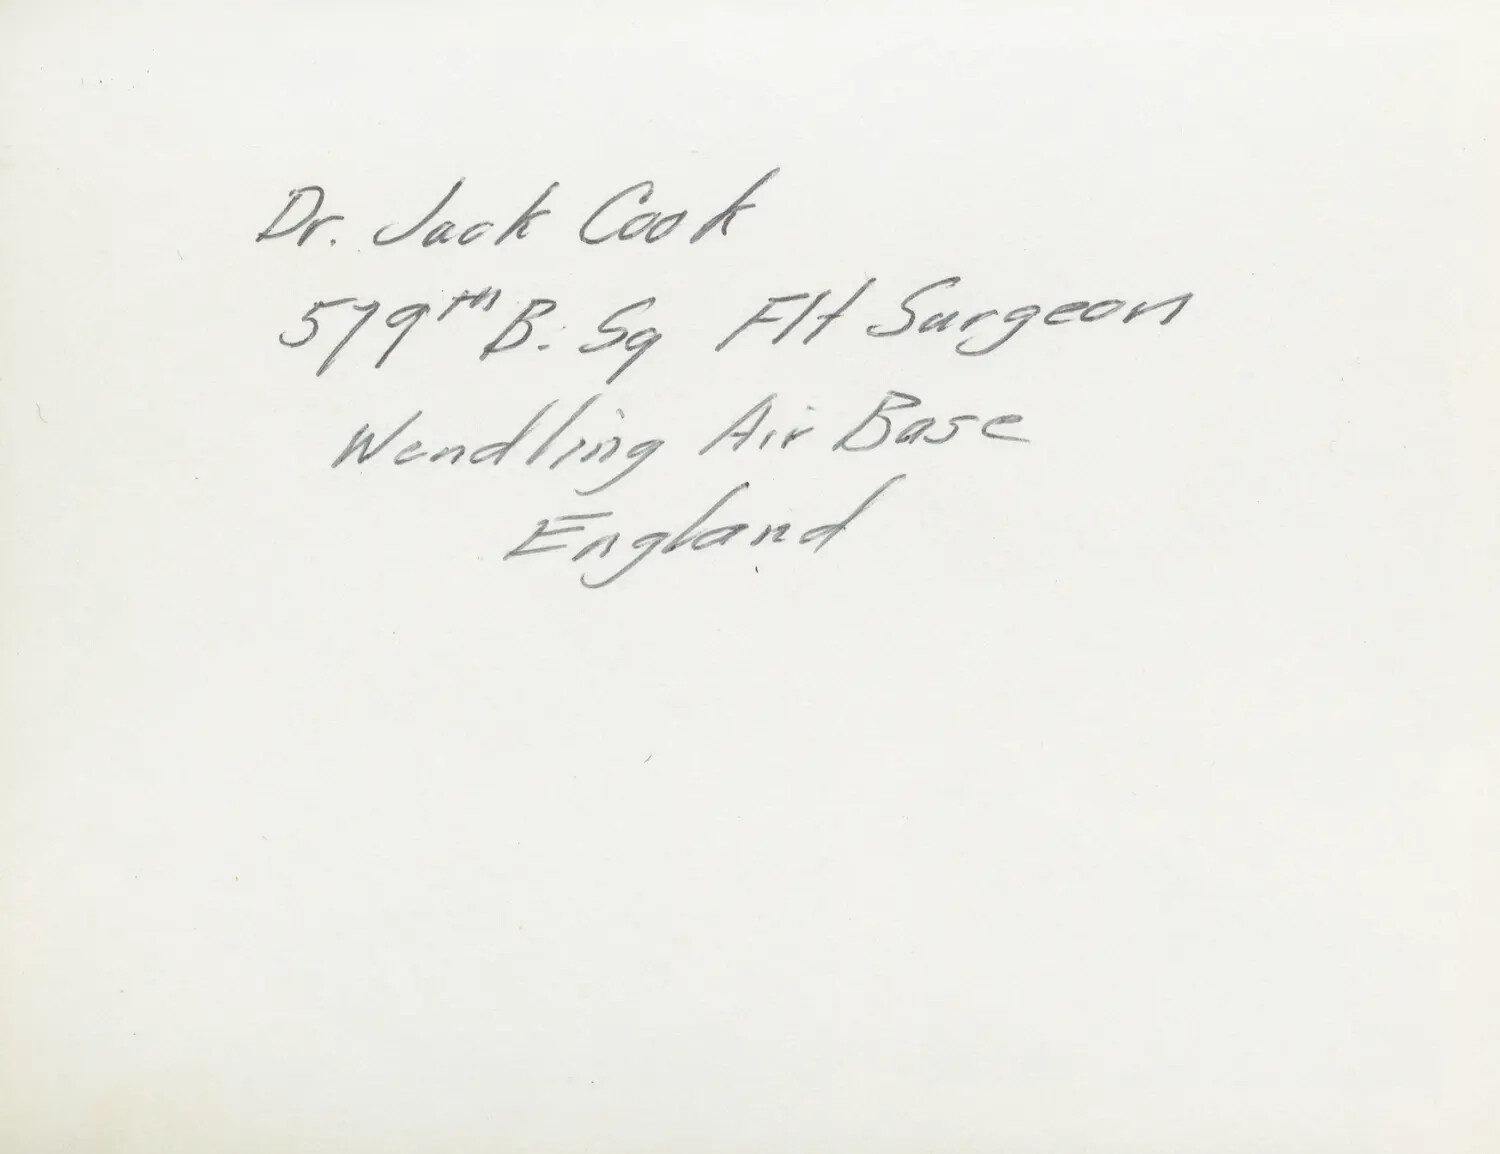 Dr. Jack Cook
579th B. Sq Flt Surgeon
Wendling Air Base
England